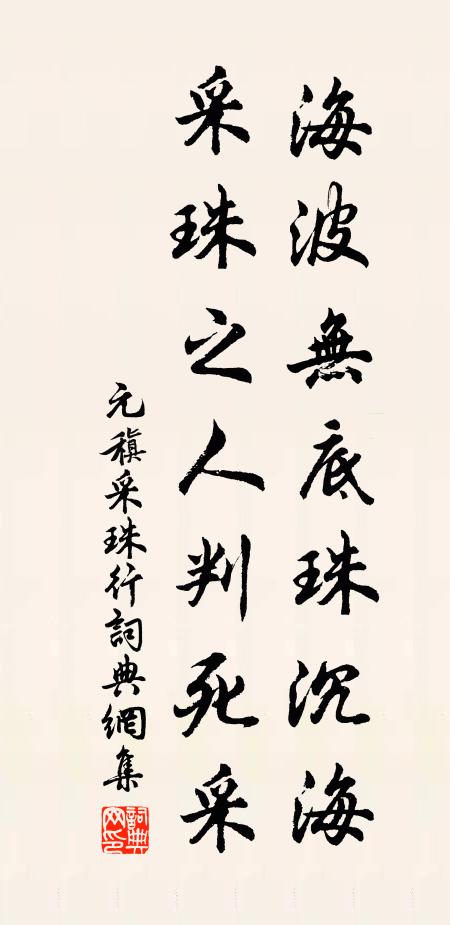 海波無底珠沉海
采珠之人判死采
元稹采珠行詞典網集
詞典網印